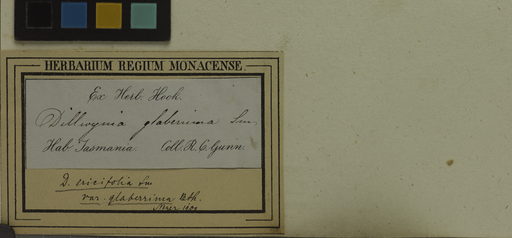 HERBARIUM REGIUM MONACENSE.
Ex Herb. Hook.
Dillwynia glaberrima Sm.
Hab. Tasmania. Coll. R. C. Gunn.
D. ericifolia Sm
var. glaberrima Bth.